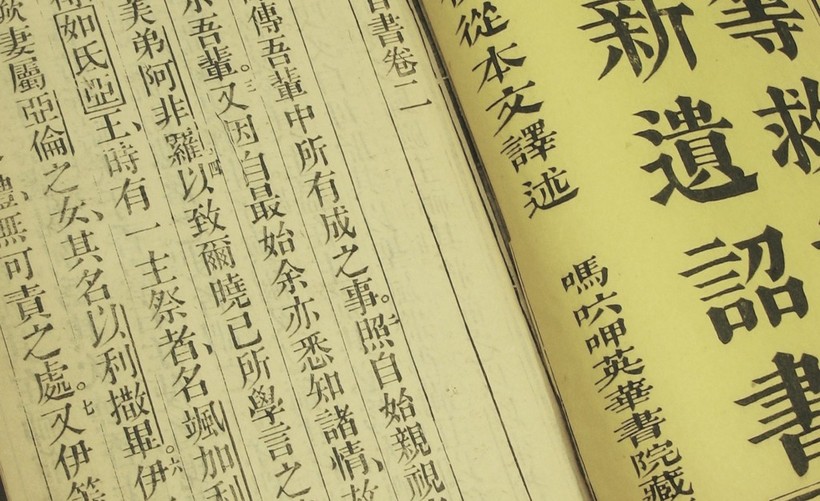 等救
新遺詔書
從本文譯述
嗎呷英華書院藏
書卷二
傳吾輩中所有成之事。二照自始親視
吾輩。三又因自最始余亦悉知諸情、故
美弟阿非羅四以致爾曉已所學言之
如氏亞王、時有一主祭者、名颯加利
妻屬亞倫之女、其名以利撒畢。六伊
無可責之處。七又伊等